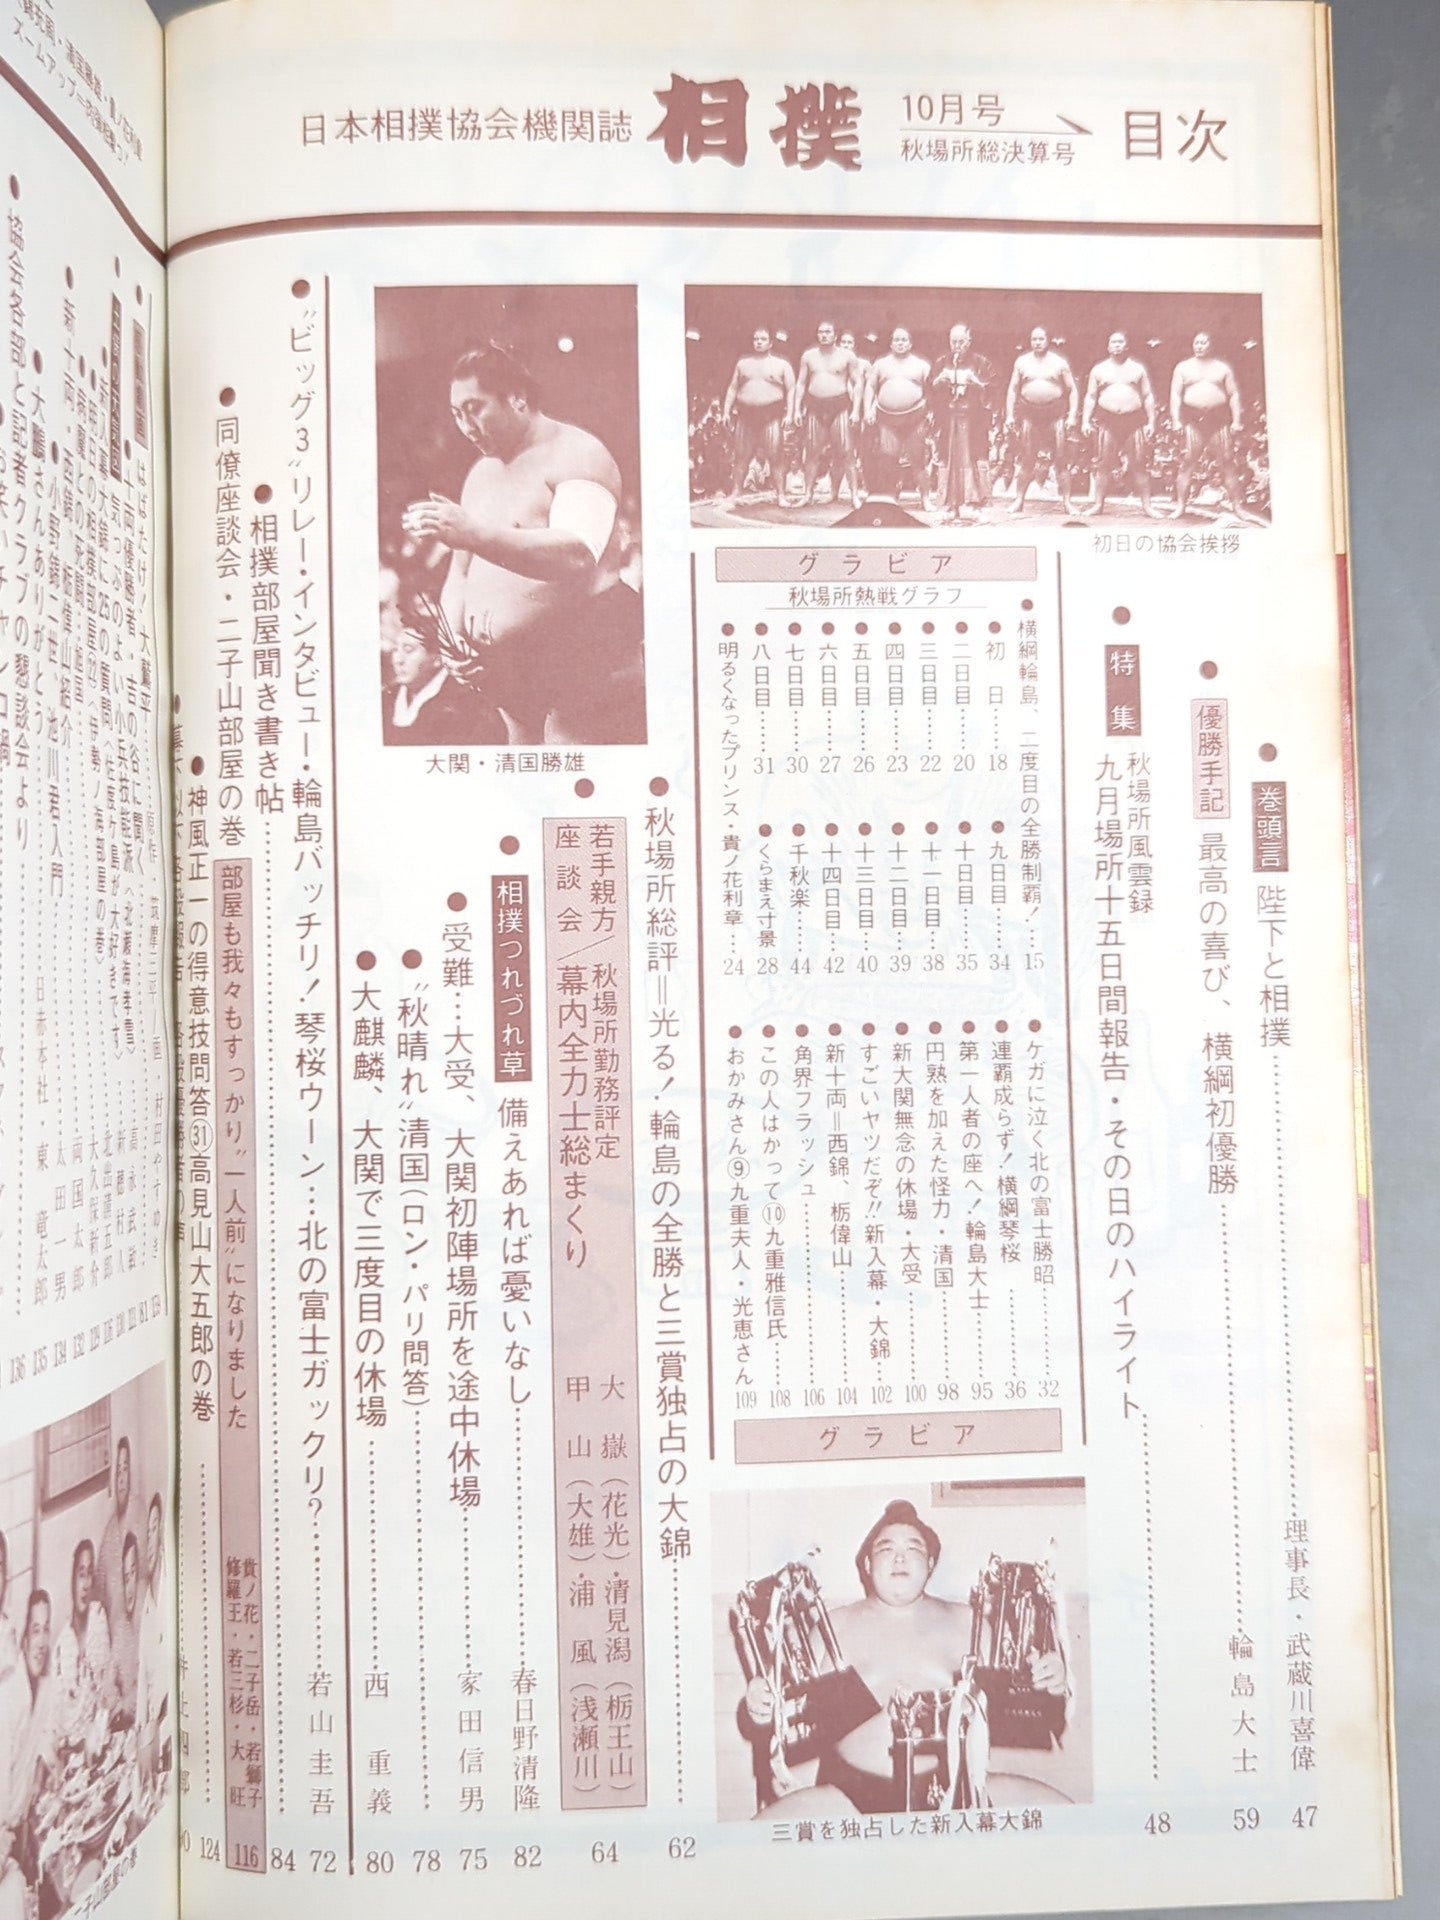 日本相撲協会機関誌 相撲 10月号 秋場所総決算号 目次
初日の協会挨拶
●巻頭言 陛下と相撲……理事長・武蔵川喜偉 47
●優勝手記 最高の喜び、横綱初優勝……輪島大士 59
●特集 秋場所風雲録
九月場所十五日間報告・その日のハイライト……48
グラビア
秋場所熱戦グラフ
●横綱輪島、二度目の全勝制覇!……15
●初日……18
●二日目……20
●三日目……22
●四日目……23
●五日目……26
●六日目……27
●七日目……30
●八日目……31
●九日目……34
●十日目……35
●十一日目……38
●十二日目……39
●十三日目……40
●十四日目……42
●千秋楽……44
●くらまえ寸景……28
●明るくなったプリンス・貴ノ花利章……24
●ケガに泣く北の富士勝昭……32
●連覇成らず!横綱琴桜……36
●第一人者の座へ!輪島大士……95
●円熟を加えた怪力・清国……98
●新大関無念の休場・大受……100
●すごいヤツだぞ!!新入幕・大錦……102
●新十両=西錦、栃偉山……104
●角界フラッシュ……106
●この人はかって⑩九重雅信氏……108
●おかみさん⑨九重夫人・光恵さん 109
グラビア
三賞を独占した新入幕大錦
大関・清国勝雄
●秋場所総評=光る!輪島の全勝と三賞独占の大錦……62
●若手親方座談会/秋場所勤務評定
/幕内全力士総まくり
大嶽(花光)・清見潟(栃王山)
甲山(大雄)・浦風(浅瀬川)
64
●相撲つれづれ草 備えあれば憂いなし……春日野清隆 82
●受難…大受、大関初陣場所を途中休場……家田信男 75
●"秋晴れ"清国(ロン・パリ問答)……78
●大麒麟、大関で三度目の休場……西重義 80
●"ビッグ3"リレー・インタビュー・輪島バッチリ!琴桜ウーン…北の富士ガックリ?……若山圭吾 72
●相撲部屋聞き書き帖……84
●同僚座談会・二子山部屋の巻 部屋も我々もすっかり"一人前"になりました
貴ノ花・二子岳・若獅子
修羅王・若三杉・大旺
116
●神風正一の得意技問答㉛高見山大五郎の巻……124
はばたけ!大鷲平
●十両優勝者・吉の谷に聞く
気っぷのよい小兵技能派(北瀬海孝雪)
●新入幕大錦に25の質問(佐度ケ島が大好きです)
●明日の相撲部屋㉒(伊勢ノ海部屋の巻)
●病魔との死闘…旭国
●新十両・西錦、栃偉山紹介
●小野錦二世、池川君入門……太田一男 134
●大鵬さんありがとう……日赤本社・東竜太郎 135
●協会各部と記者クラブの懇談会より……136